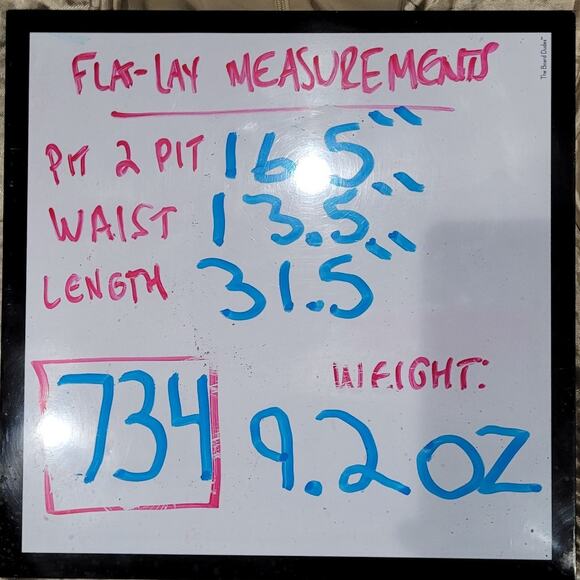 FLAT-LAY MEASUREMENTS
PIT 2 PIT 16.5"
WAIST 13.5"
LENGTH 31.5"
WEIGHT:
734 9.2 OZ
The Board Dudes™